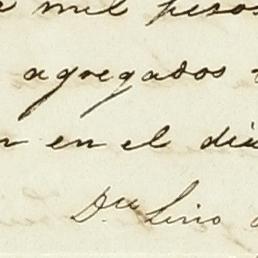 mil pesos
agregados
en el dia
Dn Lino